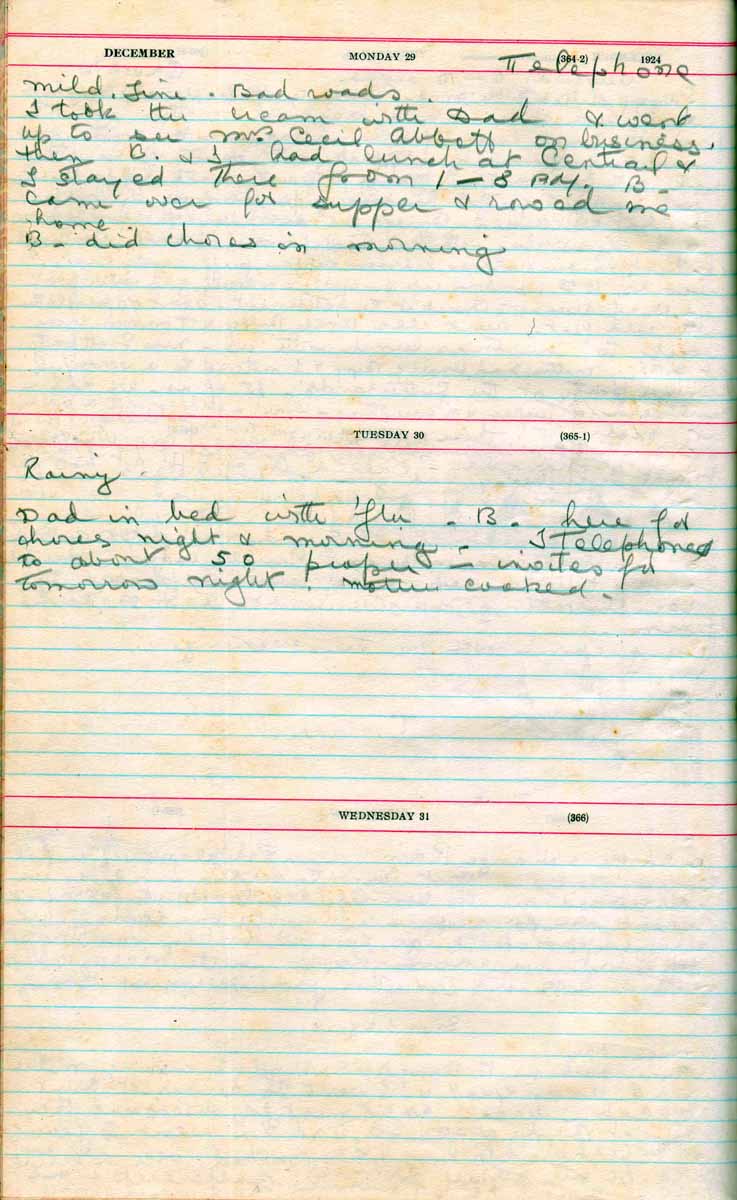 DECEMBER MONDAY 29 (364-2) 1924
Telephone
mild. Fine. Bad roads.
I took the cream with Dad & went
up to see Mrs Cecil Abbott on business.
then B. & I had lunch at Central &
I stayed there from 1 - 8 P.M. B-
came over for supper & rowed me
home.
B- did chores in morning
TUESDAY 30 (365-1)
Rainy.
Dad in bed with 'flu - B. here for
chores night & morning - I Telephoned
to about 50 people - invites for
tomorrow night. Mother cooked.
WEDNESDAY 31 (366)